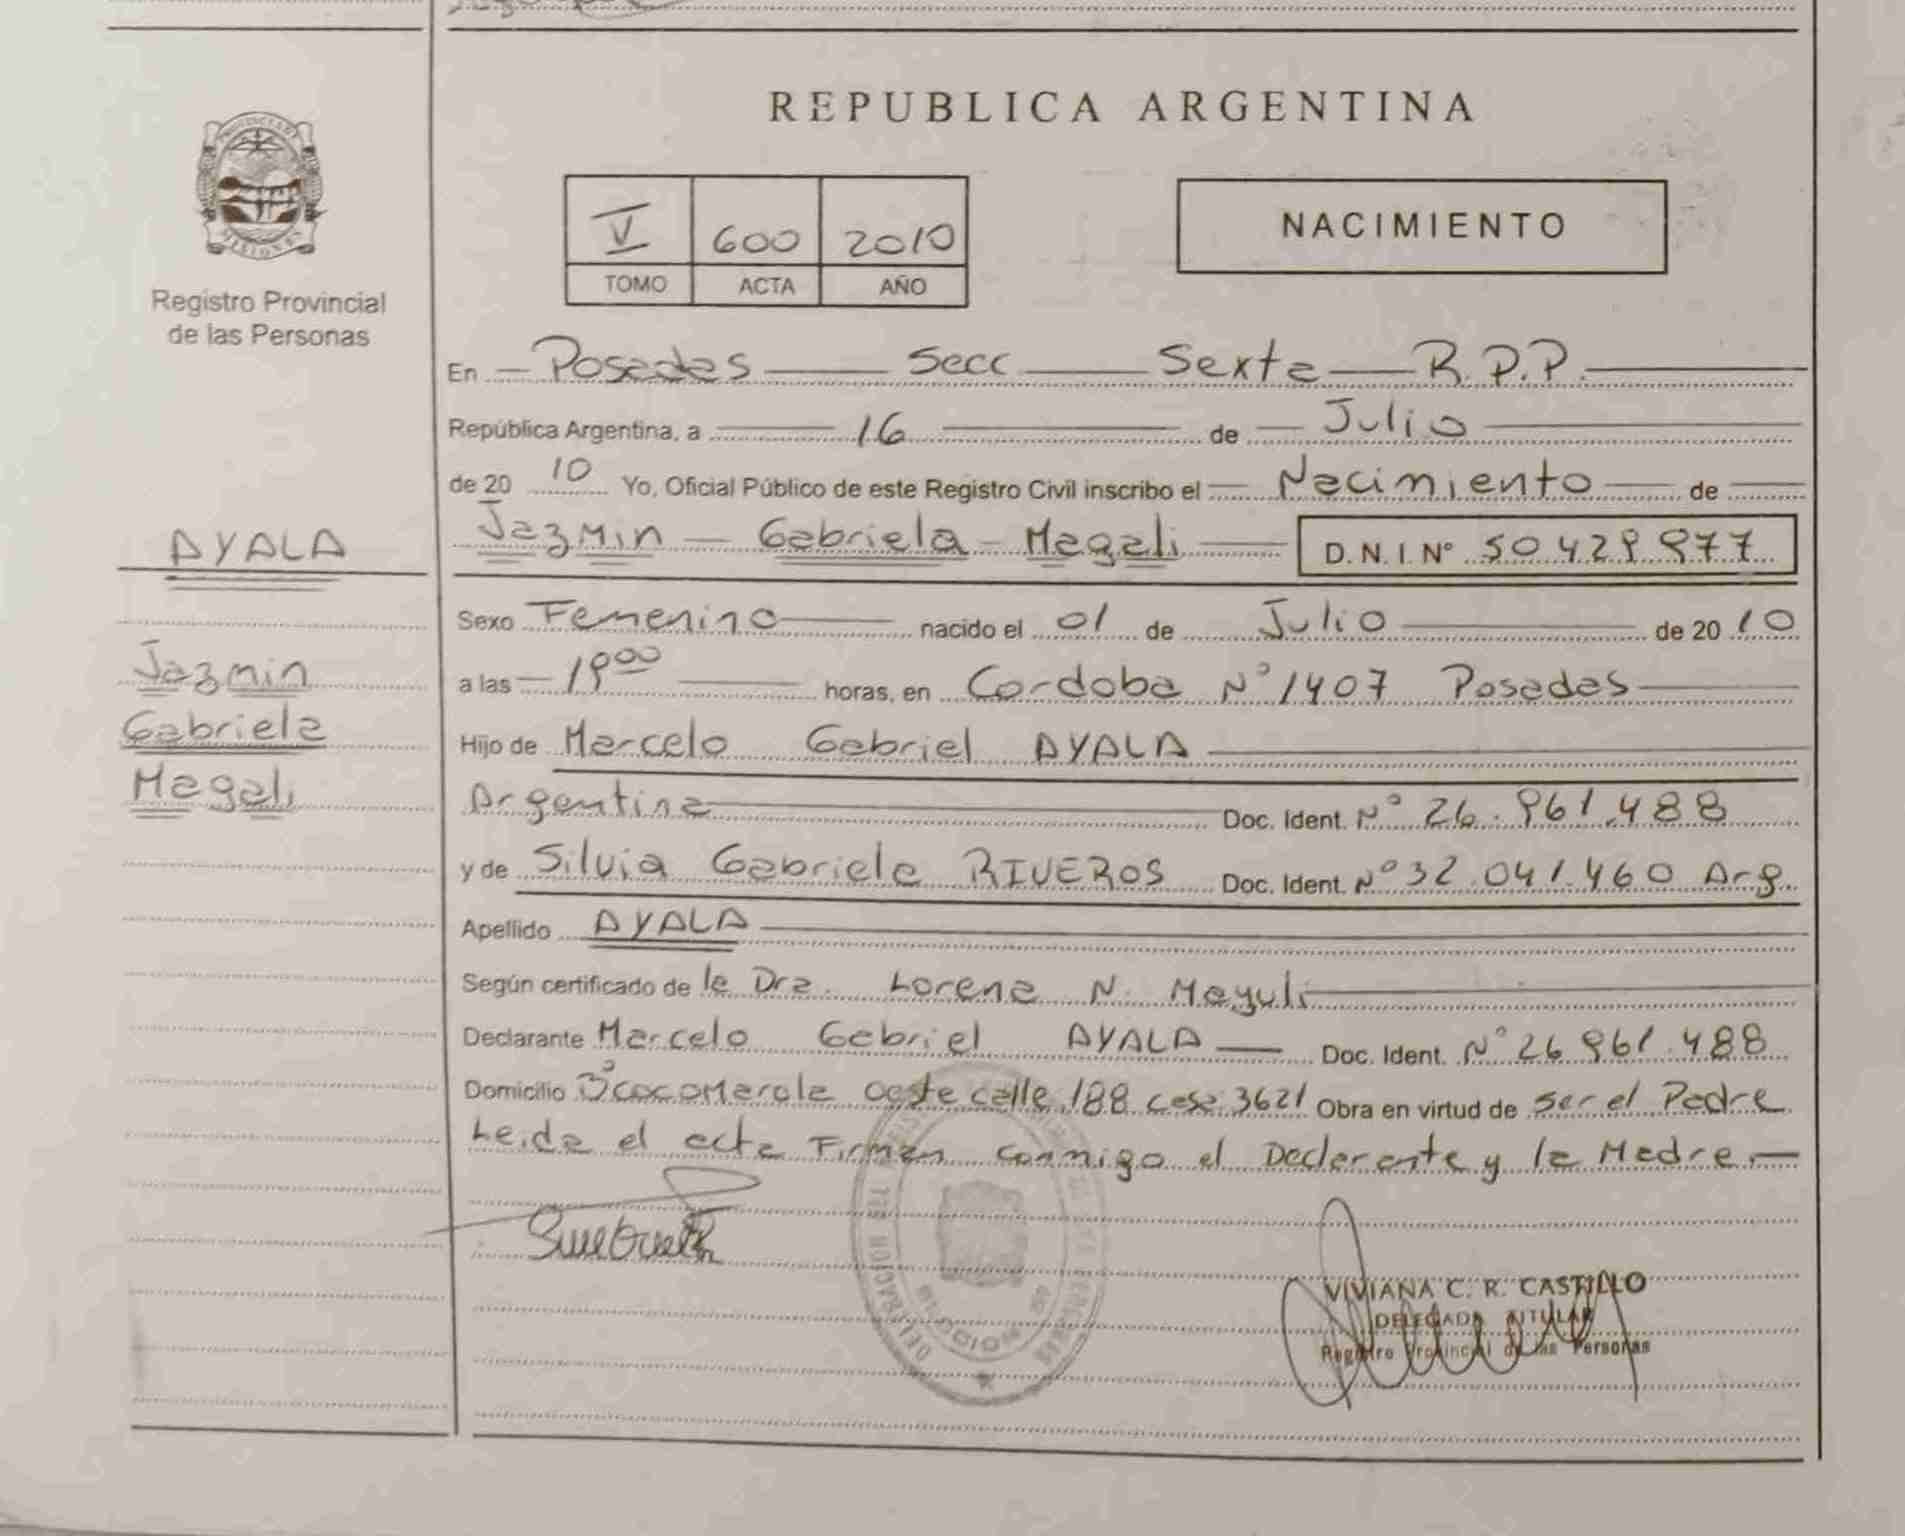 REPUBLICA ARGENTINA
V 600 2010
TOMO ACTA AÑO
NACIMIENTO
MISIONES
Registro Provincial
de las Personas
AYALA
Jazmin
Gabriela
Magali
En Posadas Secc Sexta R.P.P.
República Argentina, a 16 de Julio
de 20 10 Yo, Oficial Público de este Registro Civil inscribo el Nacimiento de
Jazmin Gabriela Magali D.N.I. Nº 50.429.977
Sexo Femenino nacido el 01 de Julio de 20 10
a las 19⁰⁰ horas, en Cordoba Nº 1407 Posadas
Hijo de Marcelo Gabriel AYALA
Argentina Doc. Ident. Nº 26.961.488
y de Silvia Gabriela RIVEROS Doc. Ident. Nº 32.041.460 Arg.
Apellido AYALA
Según certificado de la Dra. Lorena N.
Declarante Marcelo Gabriel AYALA Doc. Ident. Nº 26.961.488
Domicilio Bº Cocomarola oeste calle 188 casa 3621 Obra en virtud de ser el Padre
Leida el acta Firman conmigo el Declarante y la Madre.
VIVIANA C. R. CASTILLO
DELEGADA TITULAR
Registro Provincial de las Personas